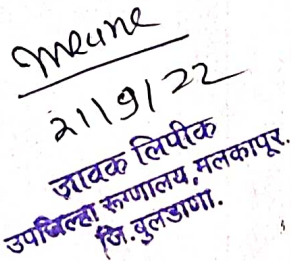 21/9/22
जावक लिपीक
उपजिल्हा रुग्णालय, मलकापूर.
जि. बुलडाणा.